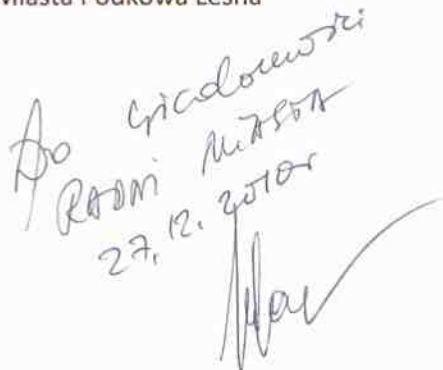 Miasta Podkowa Leśna
Do wiadomości
RADNI MIASTA
27.12.2010r